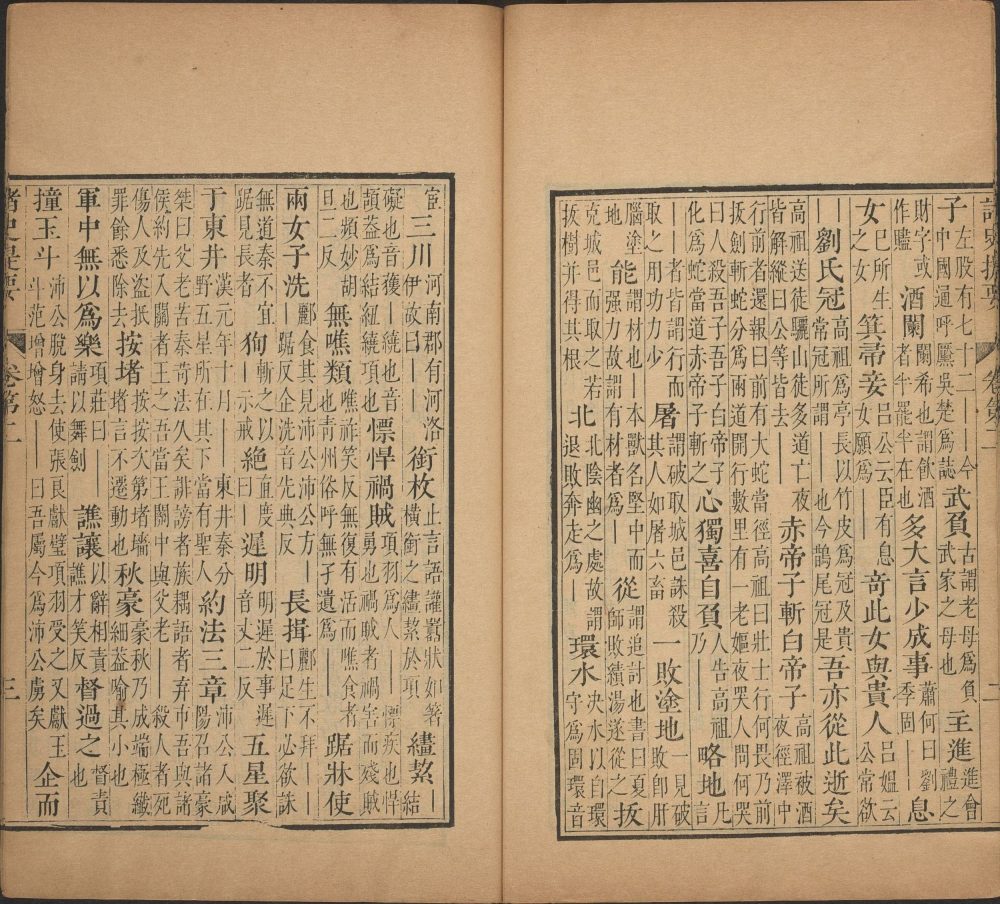 諸史提要 卷第二 二
子左股有七十二——今中國通呼黶吳楚爲誌武負古謂老母爲負武家之母也主進進會禮之
財字或作賮酒闌闌希也謂飲酒者半罷半在也多大言少成事蕭何曰劉季固——息
女巳所生之女箕帚妾呂公云臣有息女願爲——奇此女與貴人呂媼云公常欲
——劉氏冠高祖爲亭長以竹皮爲冠及貴常冠所謂——也今鵲尾冠是吾亦從此逝矣
高祖送徒驪山徒多道亡夜皆解縱曰公等皆去——赤帝子斬白帝子高祖被酒夜徑澤中
行前者還報曰前有大蛇當徑高祖曰壯士行何畏乃前拔劍斬蛇分爲兩道開行數里有一老嫗夜哭人問何哭
曰人殺吾子吾子白帝子化爲蛇當道赤帝子斬之心獨喜自負人告高祖乃——略地凡言
——者皆謂行而取之用功力少屠謂破取城邑誅殺其人如屠六畜一敗塗地一見破敗即肝
腦塗地能謂材也——本獸名堅中而强力故謂有材者爲——從謂追討也書曰夏師敗績湯遂從之拔
克城邑而取之若拔樹并得其根北北陰幽之處故謂退敗奔走爲——環水決水以自環守爲固環音
宦三川河南郡有河洛伊故曰——銜枚止言語讙囂狀如箸橫銜之繣絜於項繣絜——結
礙也音獲——繞也音頡蓋爲結紐繞項也慓悍禍賊項羽爲人——慓疾也悍勇也禍賊者禍害而殘賊
也頻妙胡旦二反無噍類也噍祚笑反無復有活而噍食者靑州俗呼無孑遺爲——踞牀使
兩女子洗酈食其見沛公沛公方——踞反企洗音先典反長揖酈生不拜——曰足下必欲誅
無道秦不宜踞見長者狥斬之以——示戒絕直度曰——遲明明遲於事遲音丈二反五星聚
于東井漢元年十月——東井秦分野五星所在其下當有聖人約法三章沛公入咸陽召諸豪
桀曰父老苦秦苛法久矣誹謗者族耦語者弃市吾與諸侯約先入關者王之吾當王關中與父老——殺人者死
傷人及盗抵罪餘悉除去按堵按按次第堵墻堵言不遷動也秋豪豪秋乃成端極纖細蓋喻其小也
軍中無以爲樂項莊曰請以舞劍譙讓以辭相責譙才笑反督過之督責也
撞玉斗沛公脫身去使張良獻璧項羽受之又獻玉斗范增增怒——曰吾屬今爲沛公虜矣企而
諸史提要 卷第二 三